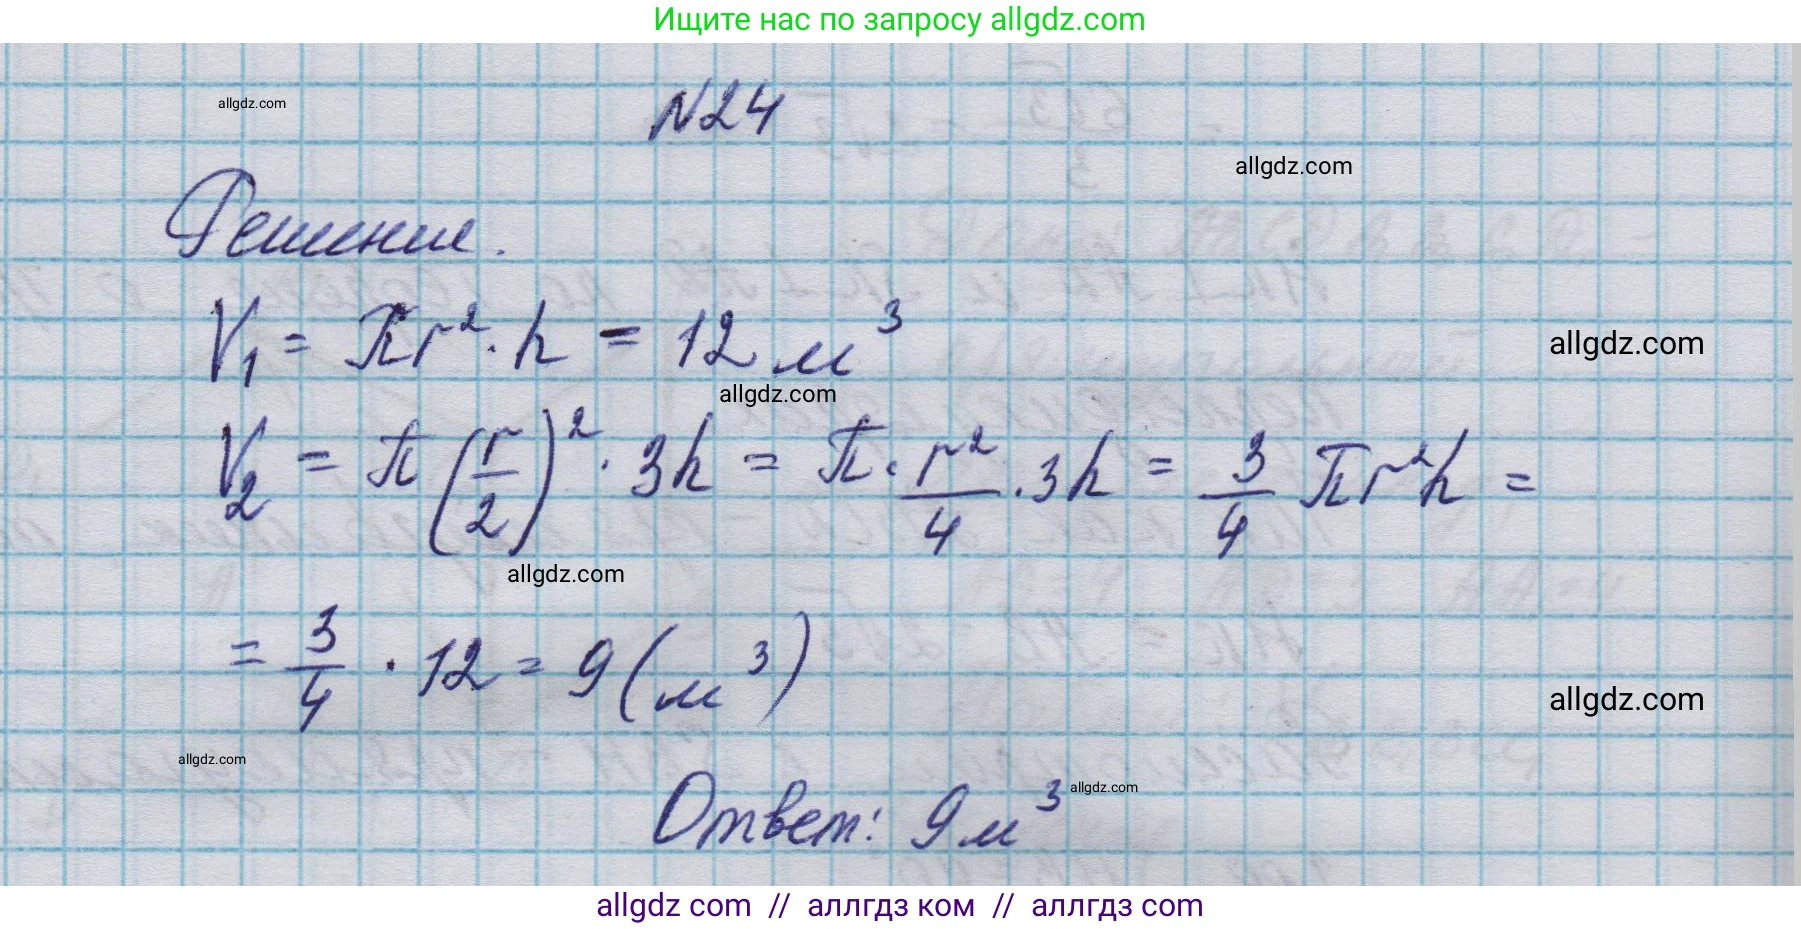 Ищите нас по запросу allgdz.com
allgdz.com
N24
allgdz.com
Решение.
V₁ = πr² · h = 12 м³
allgdz.com
allgdz.com
V₂ = π(r/2)² · 3h = π · r²/4 · 3h = 3/4 πr²h =
allgdz.com
= 3/4 · 12 = 9 (м³)
allgdz.com
allgdz.com
Ответ: 9 м³
allgdz.com
allgdz com // аллгдз ком // аллгдз com